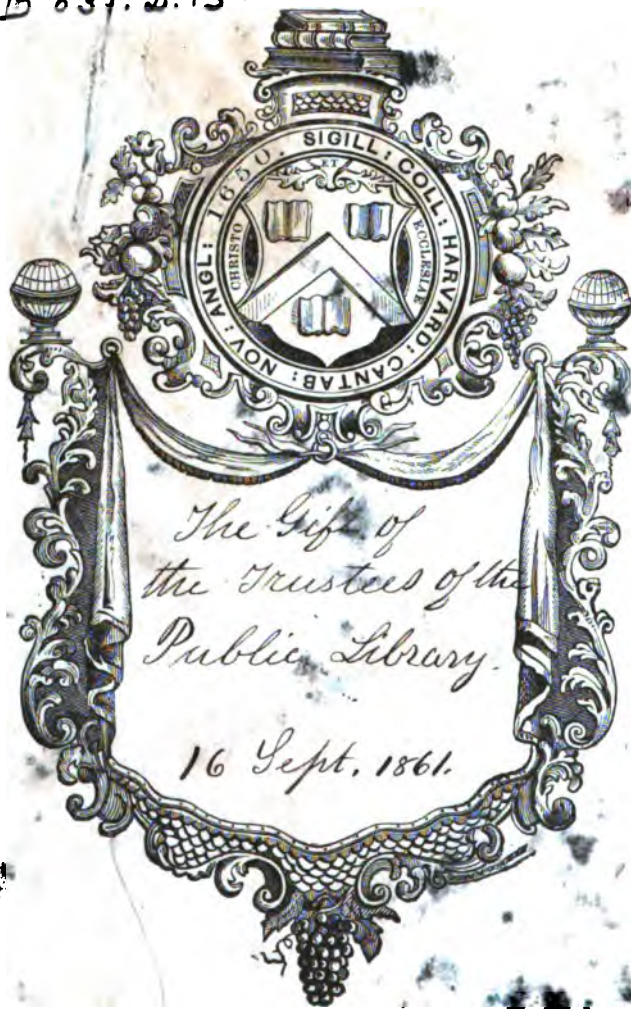 SIGILL: COLL: HARVARD: CANTAB: NOV: ANGL: 1650.
ET
CHRISTO
ECCLESIAE
The Gift of
the Trustees of the
Public Library.
16 Sept. 1861.